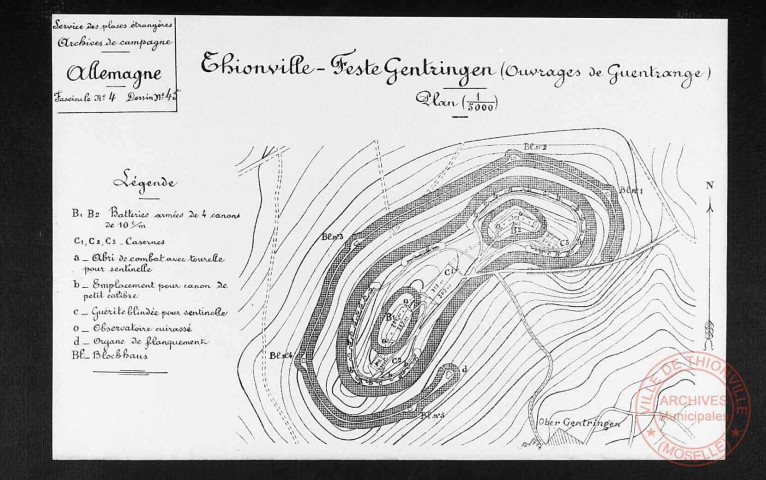 Service des places étrangères
Archives de campagne
Allemagne
Fascicule Nº 4 Dessin Nº 45
Thionville - Feste Gentringen (Ouvrages de Guentrange)
Plan (1/5000)
Légende
B1 B2 Batteries armées de 4 canons
de 10 c/m
C1, C2, C3 - Casernes
a - Abri de combat avec tourelle
pour sentinelle
b - Emplacement pour canon de
petit calibre
c - Guérite blindée pour sentinelle
o - Observatoire cuirassé
d - Organe de flanquement
Bl - Blockhaus
Bl. nº 2
Bl. nº 1
N
Bl. nº 3
B2
C3
C1
B1
C2
Bl. nº 4
d
Bl. nº 5
Ober Gentringen
VILLE DE THIONVILLE
ARCHIVES
Municipales
(MOSELLE)